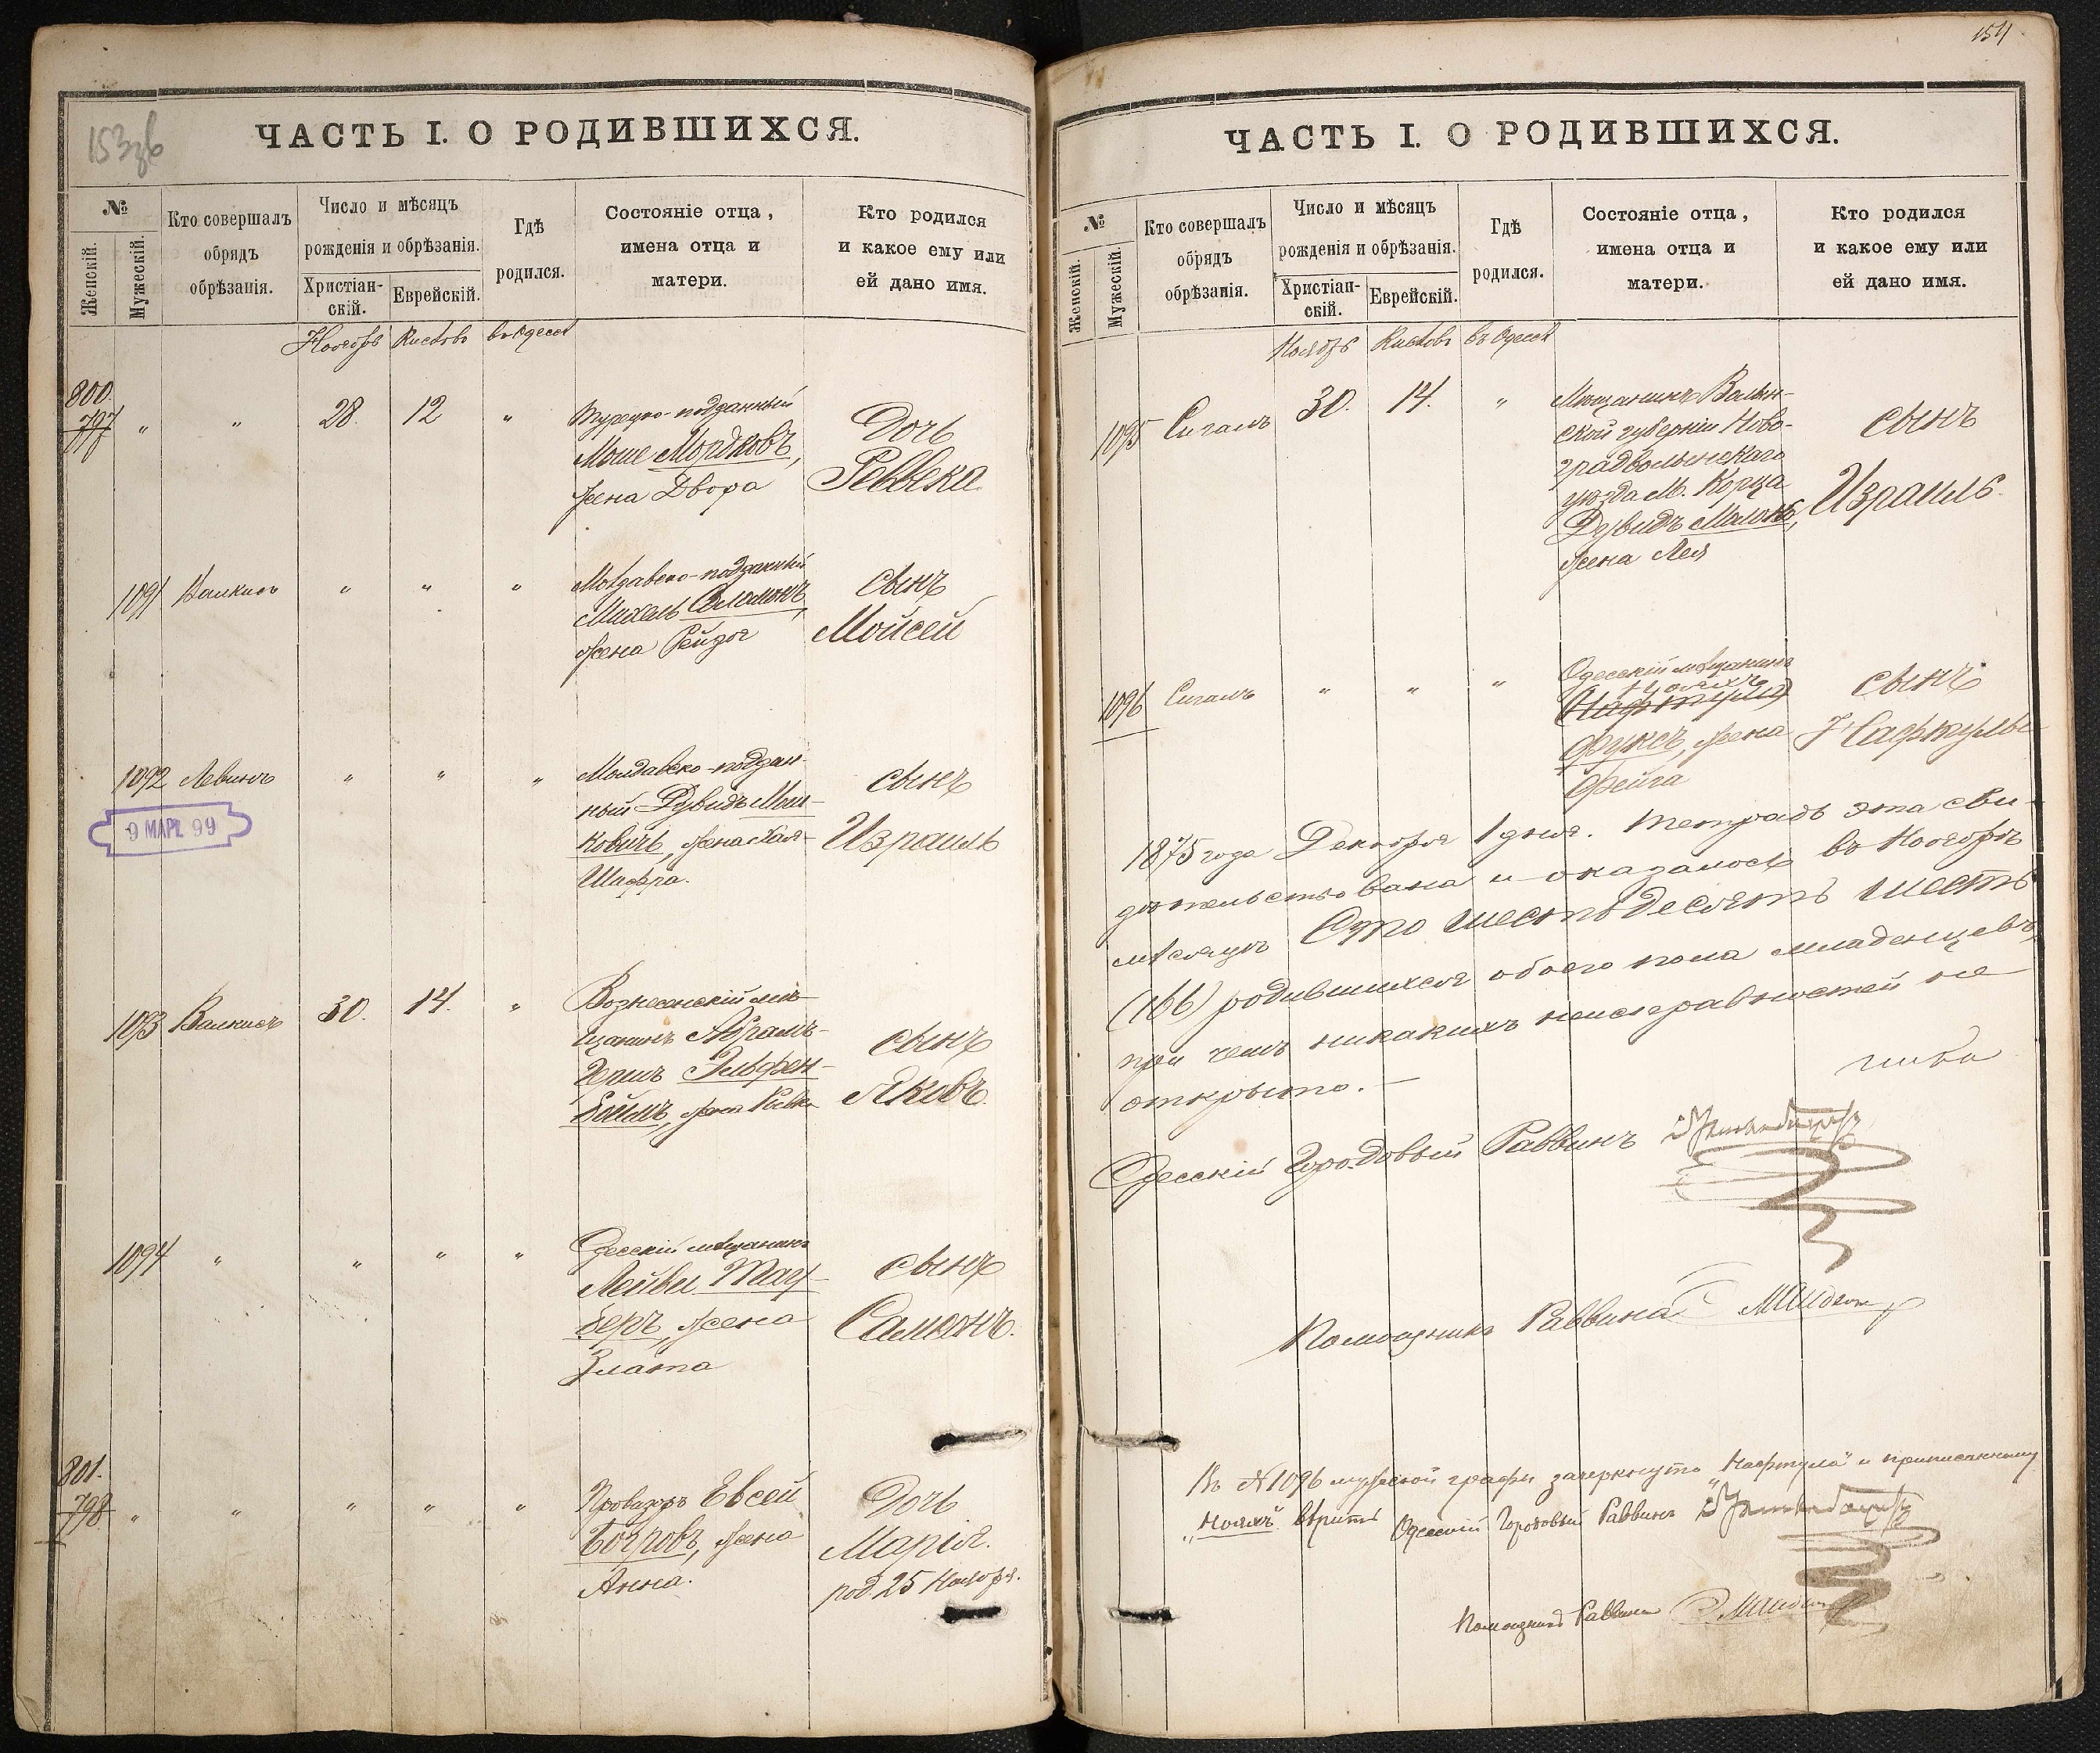 153 зв
ЧАСТЬ I. О РОДИВШИХСЯ.
№
Женскій.
Мужескій.
Кто совершалъ
обрядъ
обрѣзанія.
Число и мѣсяцъ
рожденія и обрѣзанія.
Христіан-
скій.
Еврейскій.
Гдѣ
родился.
Состояніе отца,
имена отца и
матери.
Кто родился
и какое ему или
ей дано имя.
Ноябрь Кислевъ въ Одессѣ
800.
797 " " 28. 12 "
Турецко-подданный
Моше Мордковъ,
жена Двора
Дочь
Реввека
1091 Валкисъ " " "
Молдавско-подданный
Михель Соломонъ,
жена Рейзя
сынъ
Мойсей
1092 Левинъ " " "
9 МАР. 99
Молдавско-поддан-
ный Дувидъ Мош-
ковичъ, жена Хая-
Шафра.
сынъ
Израиль
1093 Валкисъ 30. 14. "
Вознесенскій мѣ-
щанинъ Абрамъ-
Хаимъ Эльфен-
боймъ, жена Ривка
сынъ
Яковъ.
1094 " " " "
Одесскій мѣщанинъ
Лейвы Тау-
беръ, жена
Злата
сынъ
Самсонъ.
801.
798. " " " " "
Провизоръ Евсей
Богровъ, жена
Анна.
Дочь
Марія.
род. 25 Ноября.
154
ЧАСТЬ I. О РОДИВШИХСЯ.
№
Женскій.
Мужескій.
Кто совершалъ
обрядъ
обрѣзанія.
Число и мѣсяцъ
рожденія и обрѣзанія.
Христіан-
скій.
Еврейскій.
Гдѣ
родился.
Состояніе отца,
имена отца и
матери.
Кто родился
и какое ему или
ей дано имя.
Ноябрь Кислевъ въ Одессѣ
1095 Сигалъ 30. 14. "
Мѣщанинъ Волын-
ской губерніи Ново-
градволынскаго
уѣзда М. Корца
Дувидъ
жена Лея
сынъ
Израиль.
1096 Сигалъ " " "
Одесскій мѣщанинъ
Нафтула
Фуксъ, жена
Фейга
сынъ
Нафтулы
1875 года Декабря 1 дня. Тетрадь эта сви-
дѣтельствована и оказалось въ Ноябрѣ
мѣсяцѣ Сто шестьдесятъ шесть
(166) родившихся обоего пола младенцевъ,
при чемъ никакихъ неисправностей не
открыто. —
Одесскій Городовый Раввинъ
Помощникъ Раввина
Въ № 1096 мужеской графы зачеркнуто „Нафтула" и приписанному
вѣрить Одесскій Городовый Раввинъ
Помощникъ Раввина